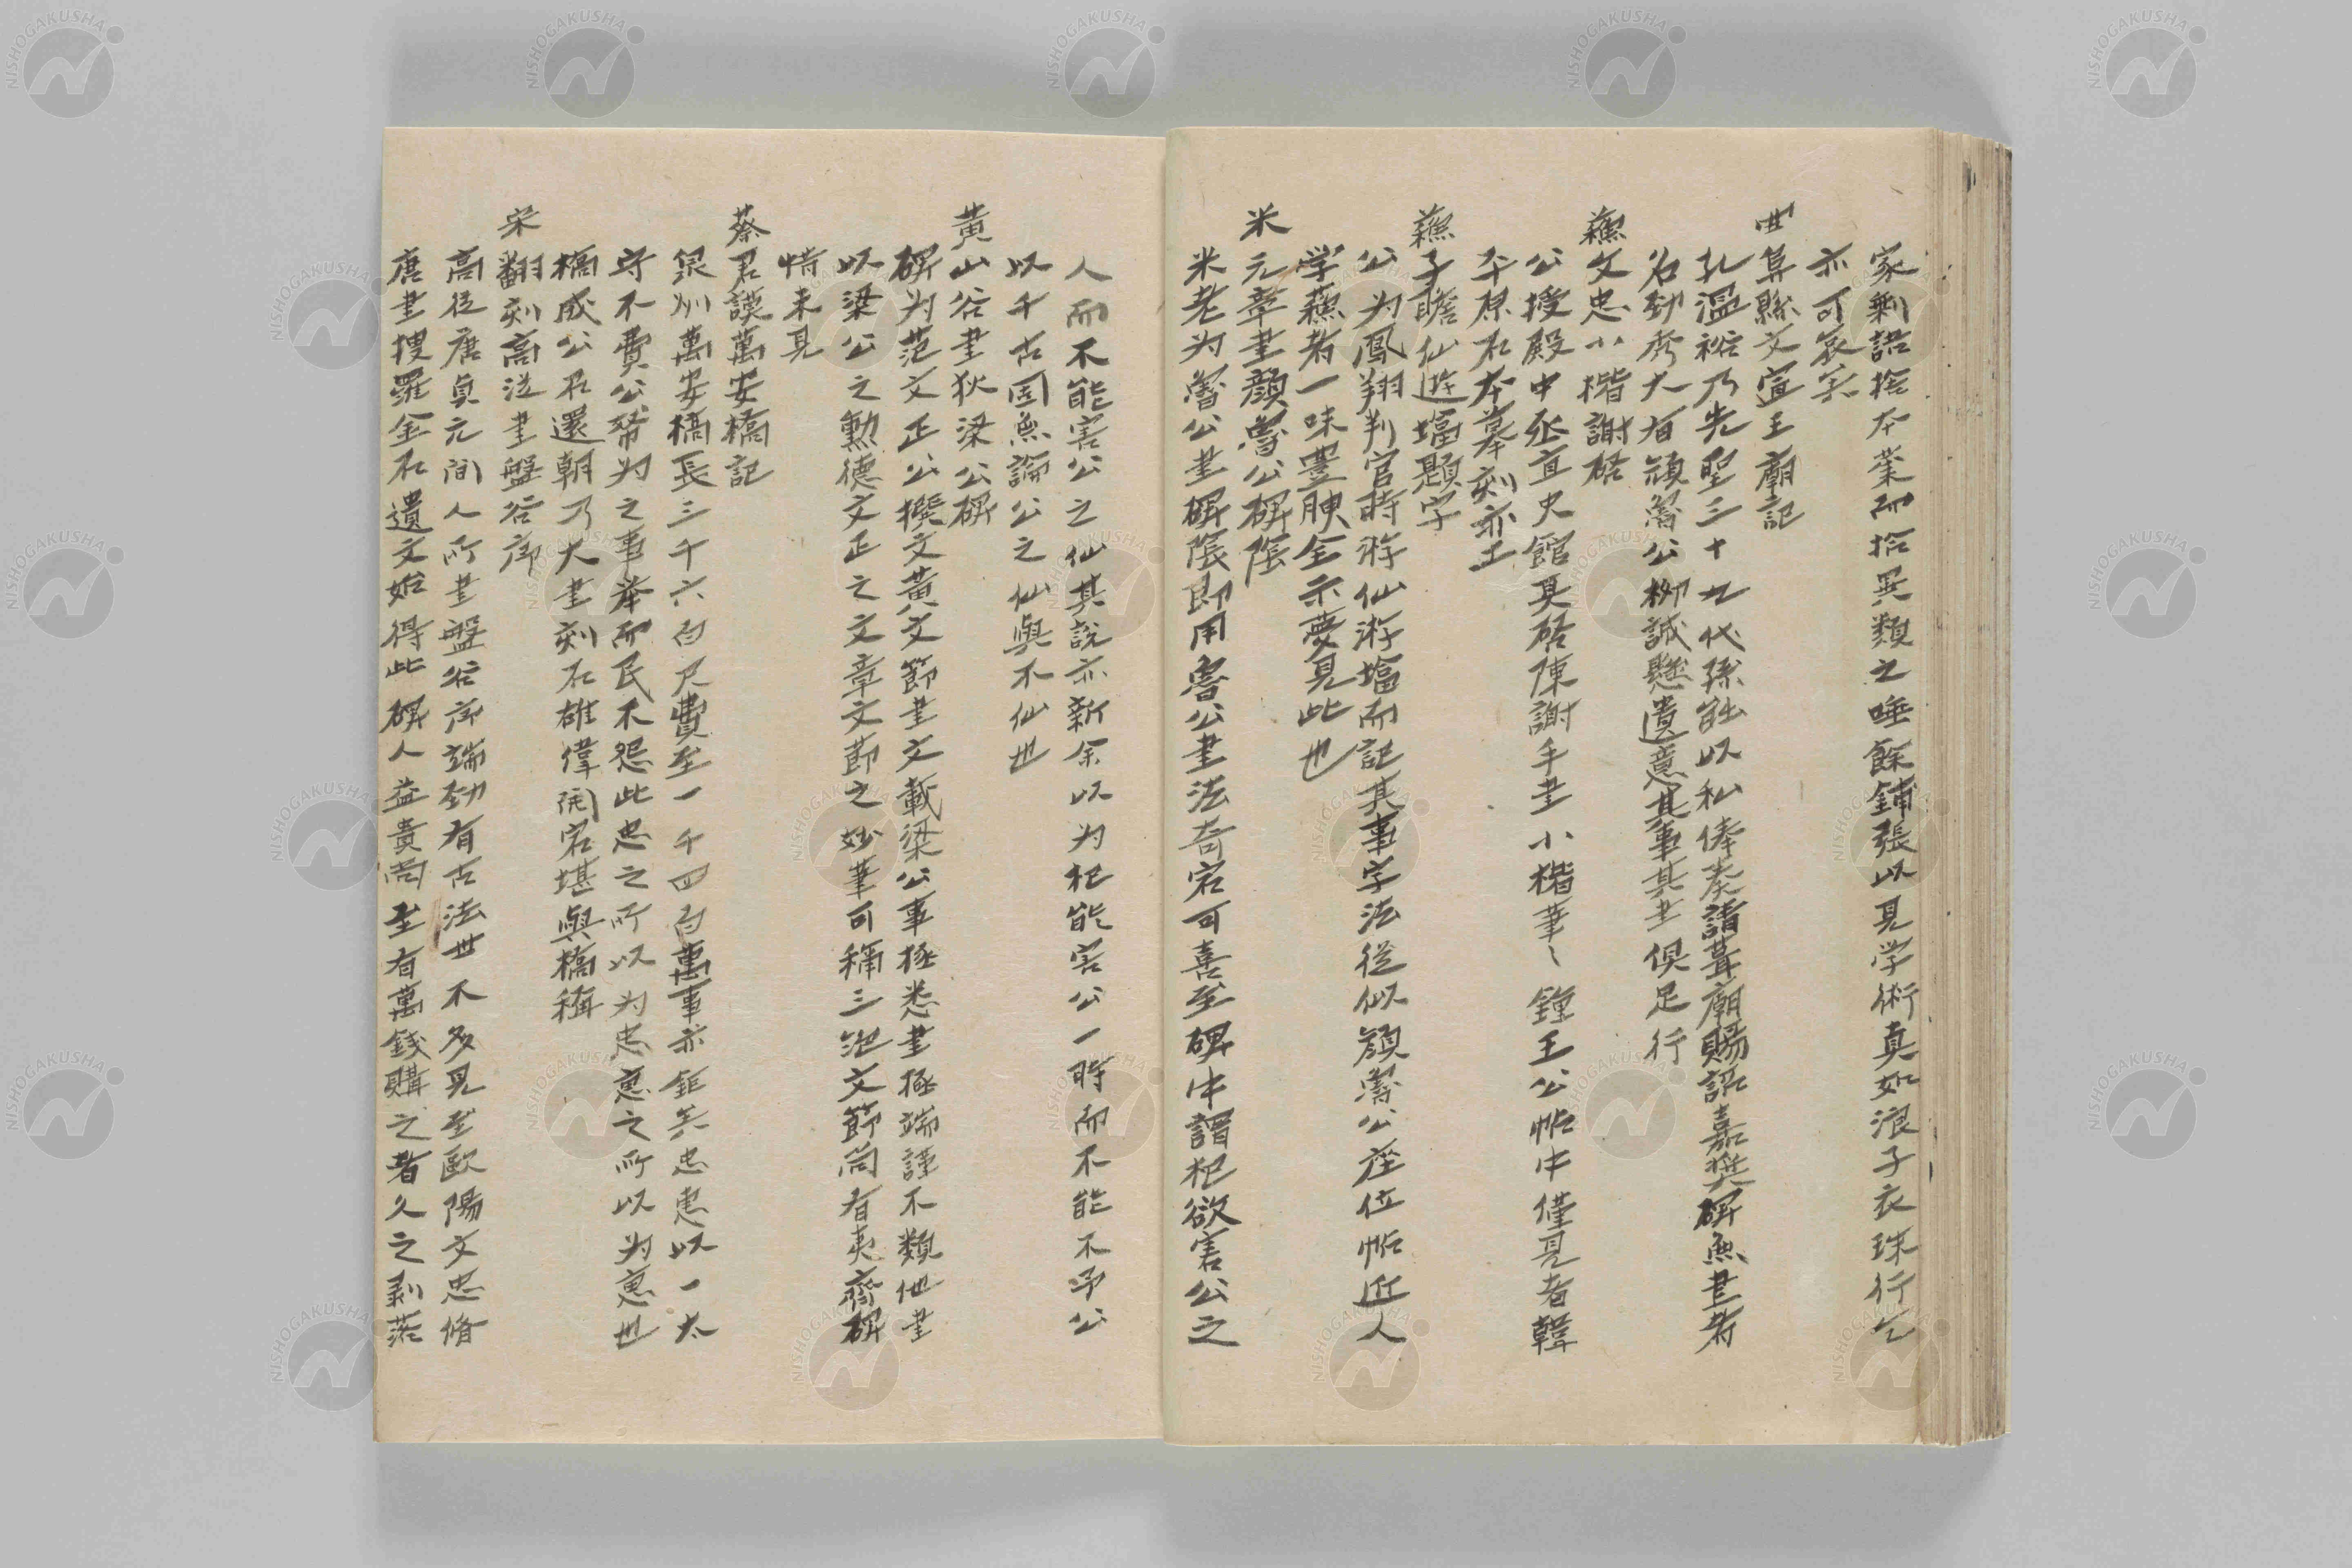 家剩語捨本業而拾異類之唾餘鋪張以見学術真如浪子衣珠行乞
亦可哀矣
曲阜縣文宣王廟記
孔溫裕乃先聖三十九代孫能以私俸奏請葺廟賜詔嘉奬碑無書者
名勁秀大有顔魯公柳誠懸遺意其事其書俱足行
蘓文忠小楷謝啓
公授殿中丞直史館具啓陳謝手書小楷筆〻鍾王公帖中僅見者韓
平原石本摹刻亦工
蘓子瞻仙遊塸題字
公为鳳翔判官時游仙游塸而記其事字法從似顔魯公座位帖近人
学蘓者一味豐腴全示夢見此也
米元章書顔魯公碑陰
米老为魯公書碑陰即用魯公書法奇宕可喜至碑中謂杞欲害公之
人而不能害公之仙其説亦新余以为杞能害公一時而不能不予公
以千古固無論公之仙與不仙也
黄山谷書狄梁公碑
碑为范文正公撰文黄文節書文載梁公事極悉書極端謹不類他書
以梁公之勲德文正之文章文節之妙筆可稱三絶文節尚有夷齊碑
惜未見
蔡君謨萬安橋記
泉州萬安橋長三千六百尺費至一千四百萬事亦鉅矣忠惠以一太
守不費公帑为之事举而民不怨此忠之所以为忠惠之所以为惠也
橋成公召還朝乃大書刻石雄偉闊宕堪與橋稱
宋翻刻高從書盤谷序
高從唐貞元間人所書盤谷序端勁有古法世不多見至歐陽文忠脩
唐書搜羅金石遺文始得此碑人益貴尚至有萬錢購之者久之剥落